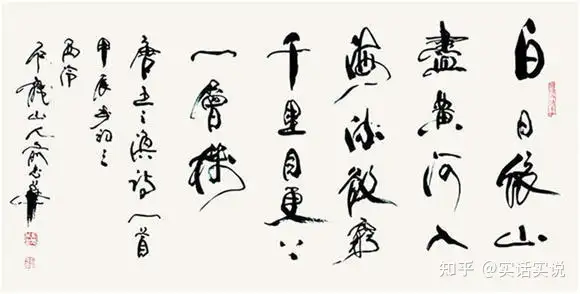 白日依山
盡黄河入
海流欲窮
千里目更上
一層樓
唐王之渙詩一首
甲辰
西泠
山人
知乎 @实话实说